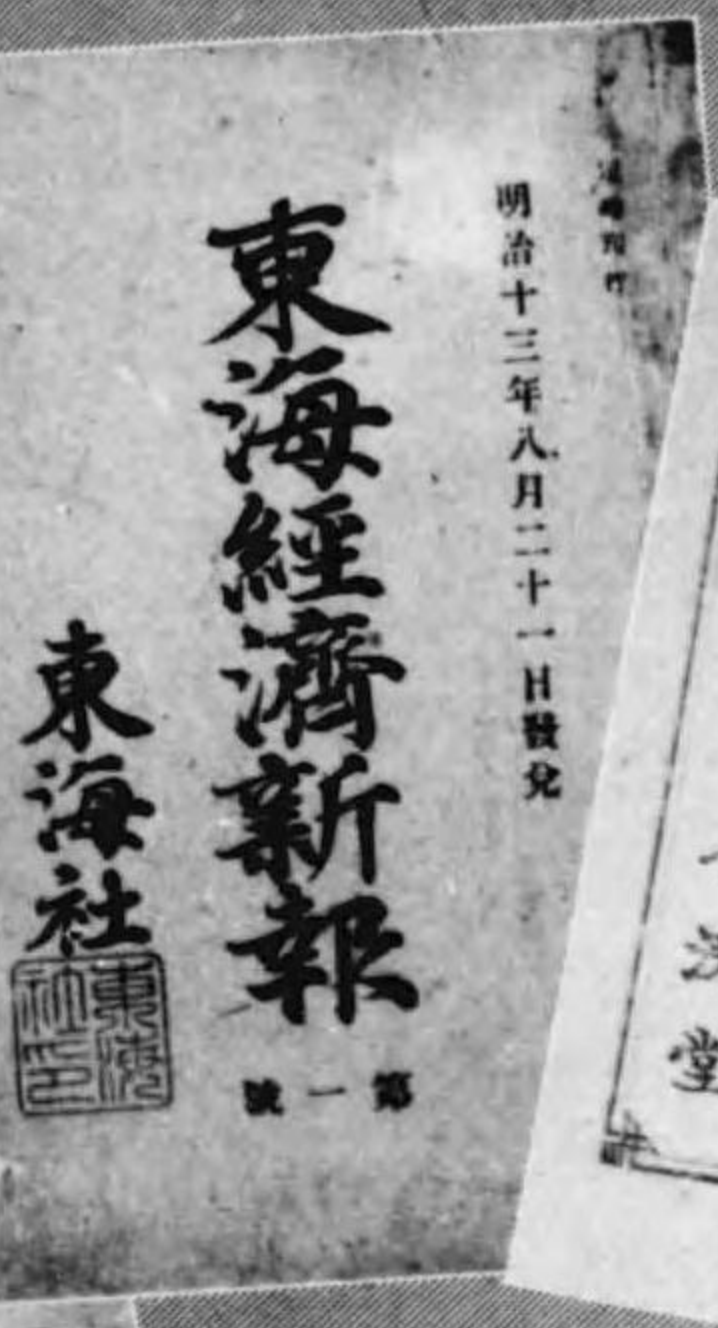 明治十三年八月二十一日發兌
東海經濟新報
第一號
東海社
東海社印
堂